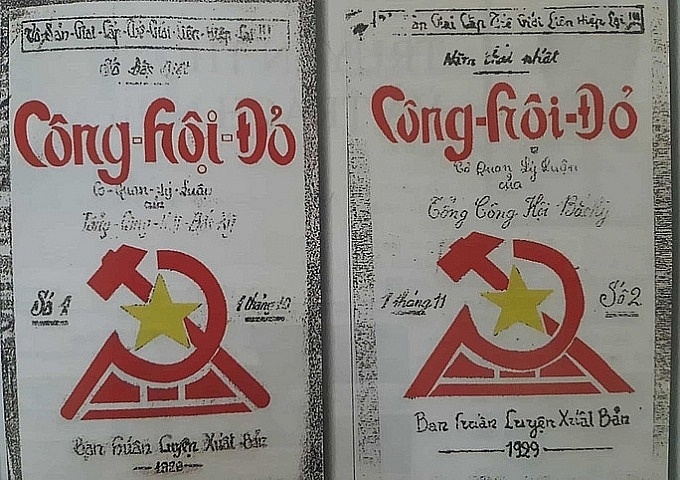 Vô-Sản-Giai-Cấp-Thế-Giới-Liên-Hiệp-Lại !!!
Công-Hội-Đỏ
Cơ-Quan-Lý-Luận
của
Tổng-Công-Hội-Bắc-Kỳ
Số 1
1 tháng 10
Ban Huấn Luyện Xuất Bản
1929
ản Giai Cấp Thế Giới Liên Hiệp Lại !!!
Năm thứ nhất
Công-Hội-Đỏ
Cơ Quan Lý Luận
của
Tổng Công Hội Bắc Kỳ
1 tháng 11
Số 2
Ban Huấn Luyện Xuất Bản
1929